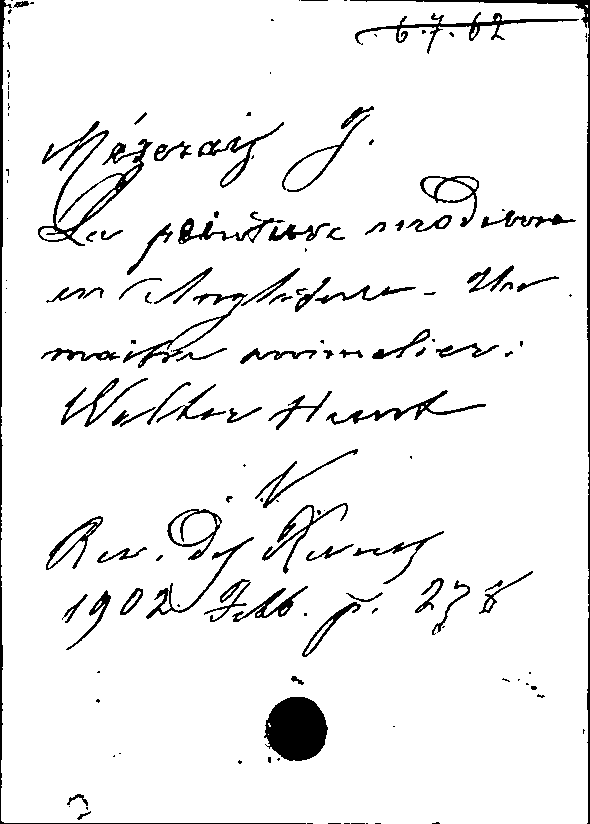 6.7.62
Mézeraiz J.
La peinture moderne
en Angleterre - Un
maitre animalier:
Walter Hunt
V
Rev. des Revues
1902 Feb. p. 278